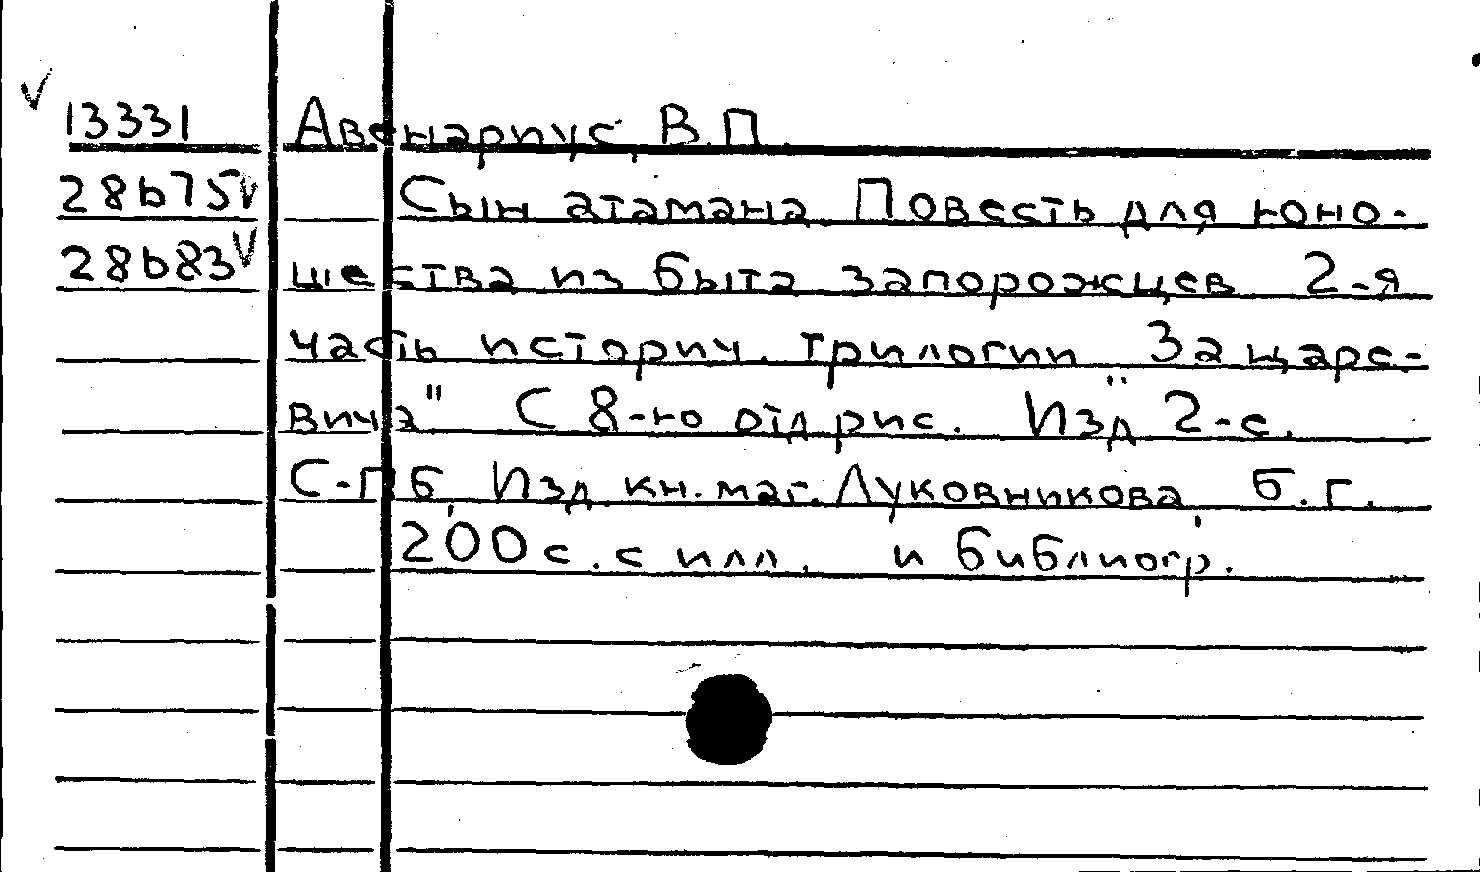 13331 Авенариус, В.П.
28b75 Сын атамана. Повесть для юно-
28b83 шества из быта запорожцев 2-я
часть историч. трилогии "За царе-
вича" С 8-ю отд рис. Изд 2-е.
С-Пб, Изд. кн. маг. Луковникова, б.г.
200 с. с илл. и библиогр.